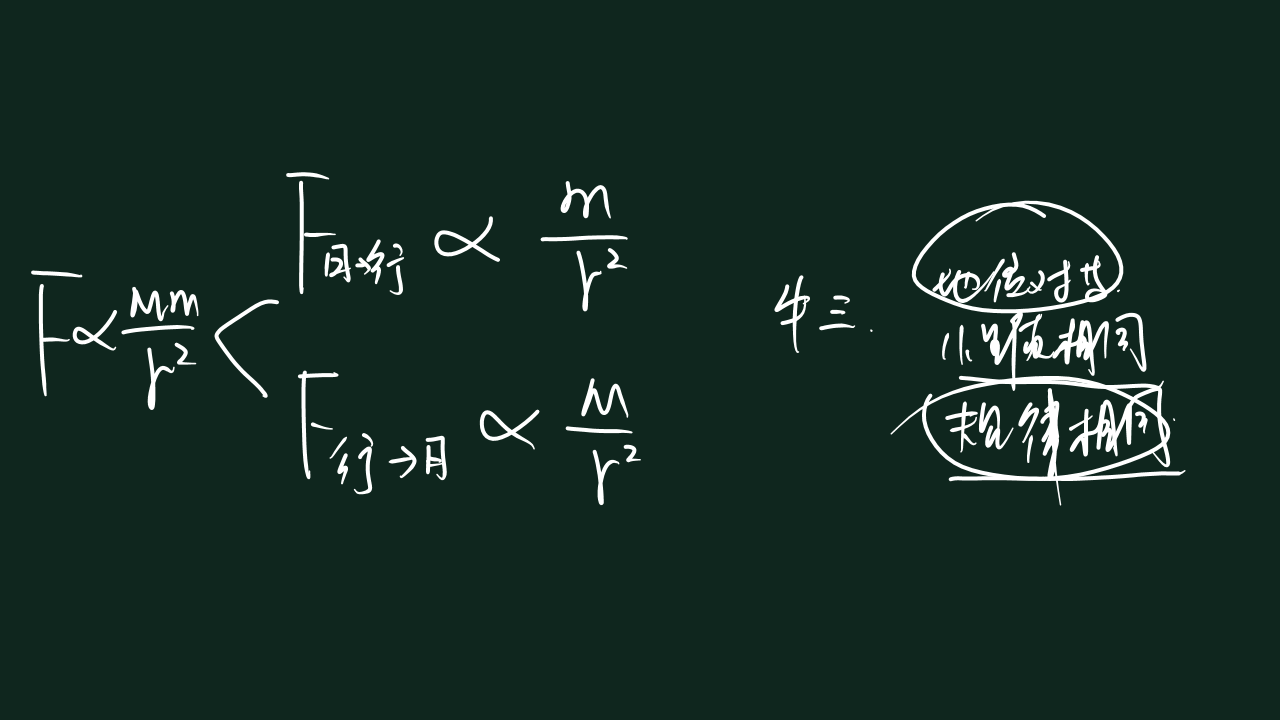 F∝Mm/r²
F日→行 ∝ m/r²
F行→日 ∝ M/r²
牛三.
地位对其
小量值相同
规律相同